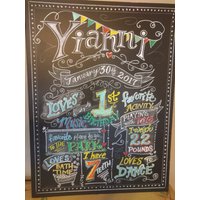 Yianni
January 30th 2014
LOVES
Music
1st
Favorite
ACTIVITY
PLAYING
WITH
Favorite place to go
TO THE
PARK
I weigh
22
POUNDS
LOVES
BATH
TIME
I have
7
TEETH
LOVES
TO
DANCE